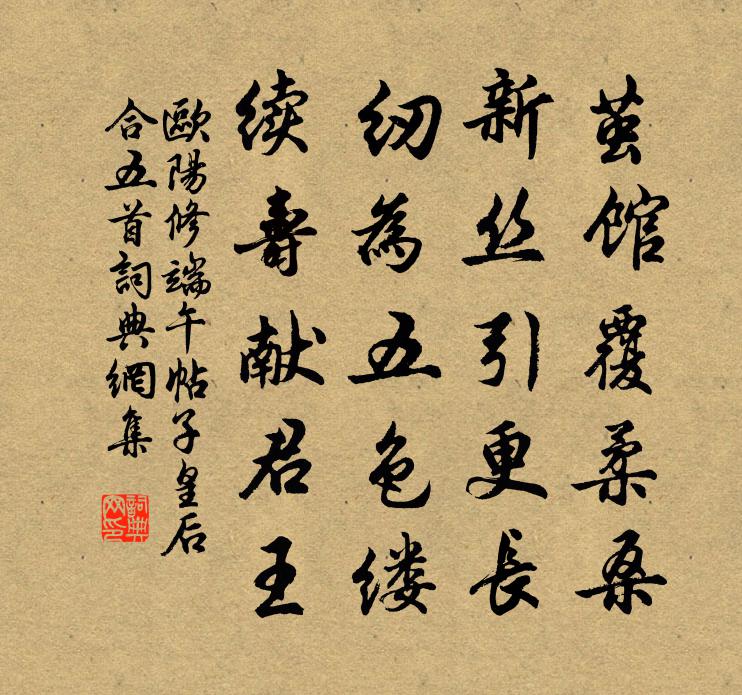 茧馆覆柔桑
新丝引更长
纫为五色缕
续寿献君王
歐陽修端午帖子皇后
合五首詞典網集
詞典
网印